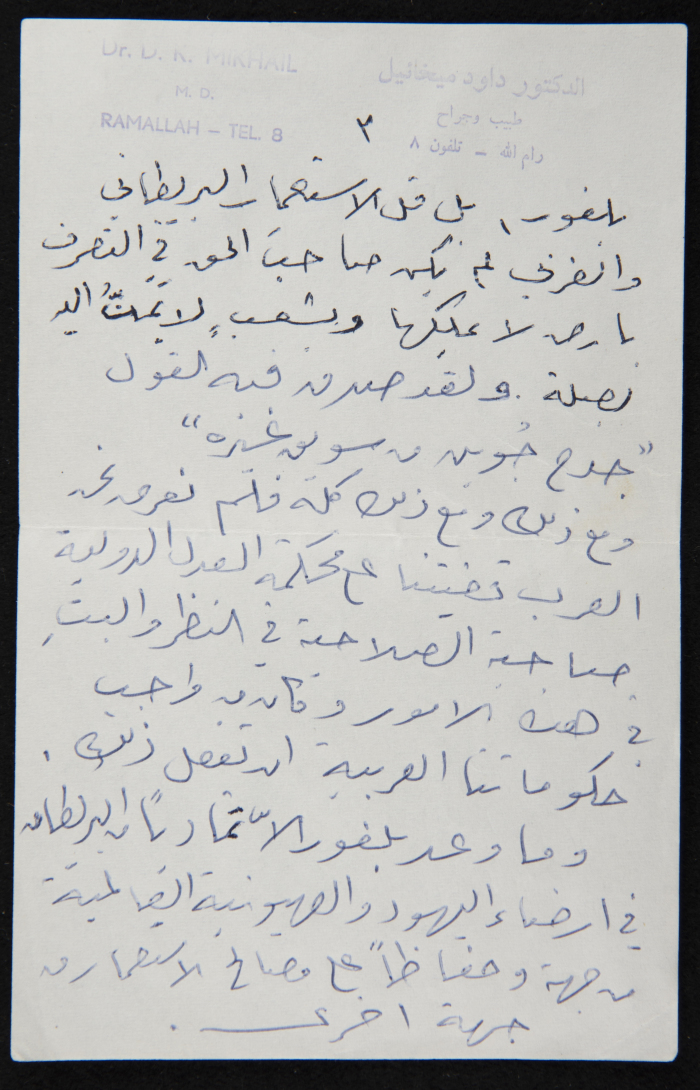 Dr. D. K. MIKHAIL
M. D.
RAMALLAH – TEL. 8
الدكتور داود ميخائيل
طبيب وجراح
رام الله – تلفون ٨
٣
بلفور، بل قل الاستعمار البريطاني
والغربي لم يكن صاحب الحق في التصرف
بارض لا يملكها وبشعب لا يَمُتُّ اليه
بصلة. ولقد صدق فيه القول
"جدح جُوين من سويق غيره"
ومع ذلك ومع ذلك كله فلم نعرض نحن
العرب قضيتنا على محكمة العدل الدولية
صاحبة الصلاحية في النظر والبتِّ
في هذه الامور وكان من واجب
حكوماتنا العربية ان تفعل ذلك.
وما وعد بلفور الاّ تمادياً من البريطان
في ارضاء اليهود والصهيونية العالمية
من جهة وحفاظاً على مصالح الاستعمار من
جهة اخرى.